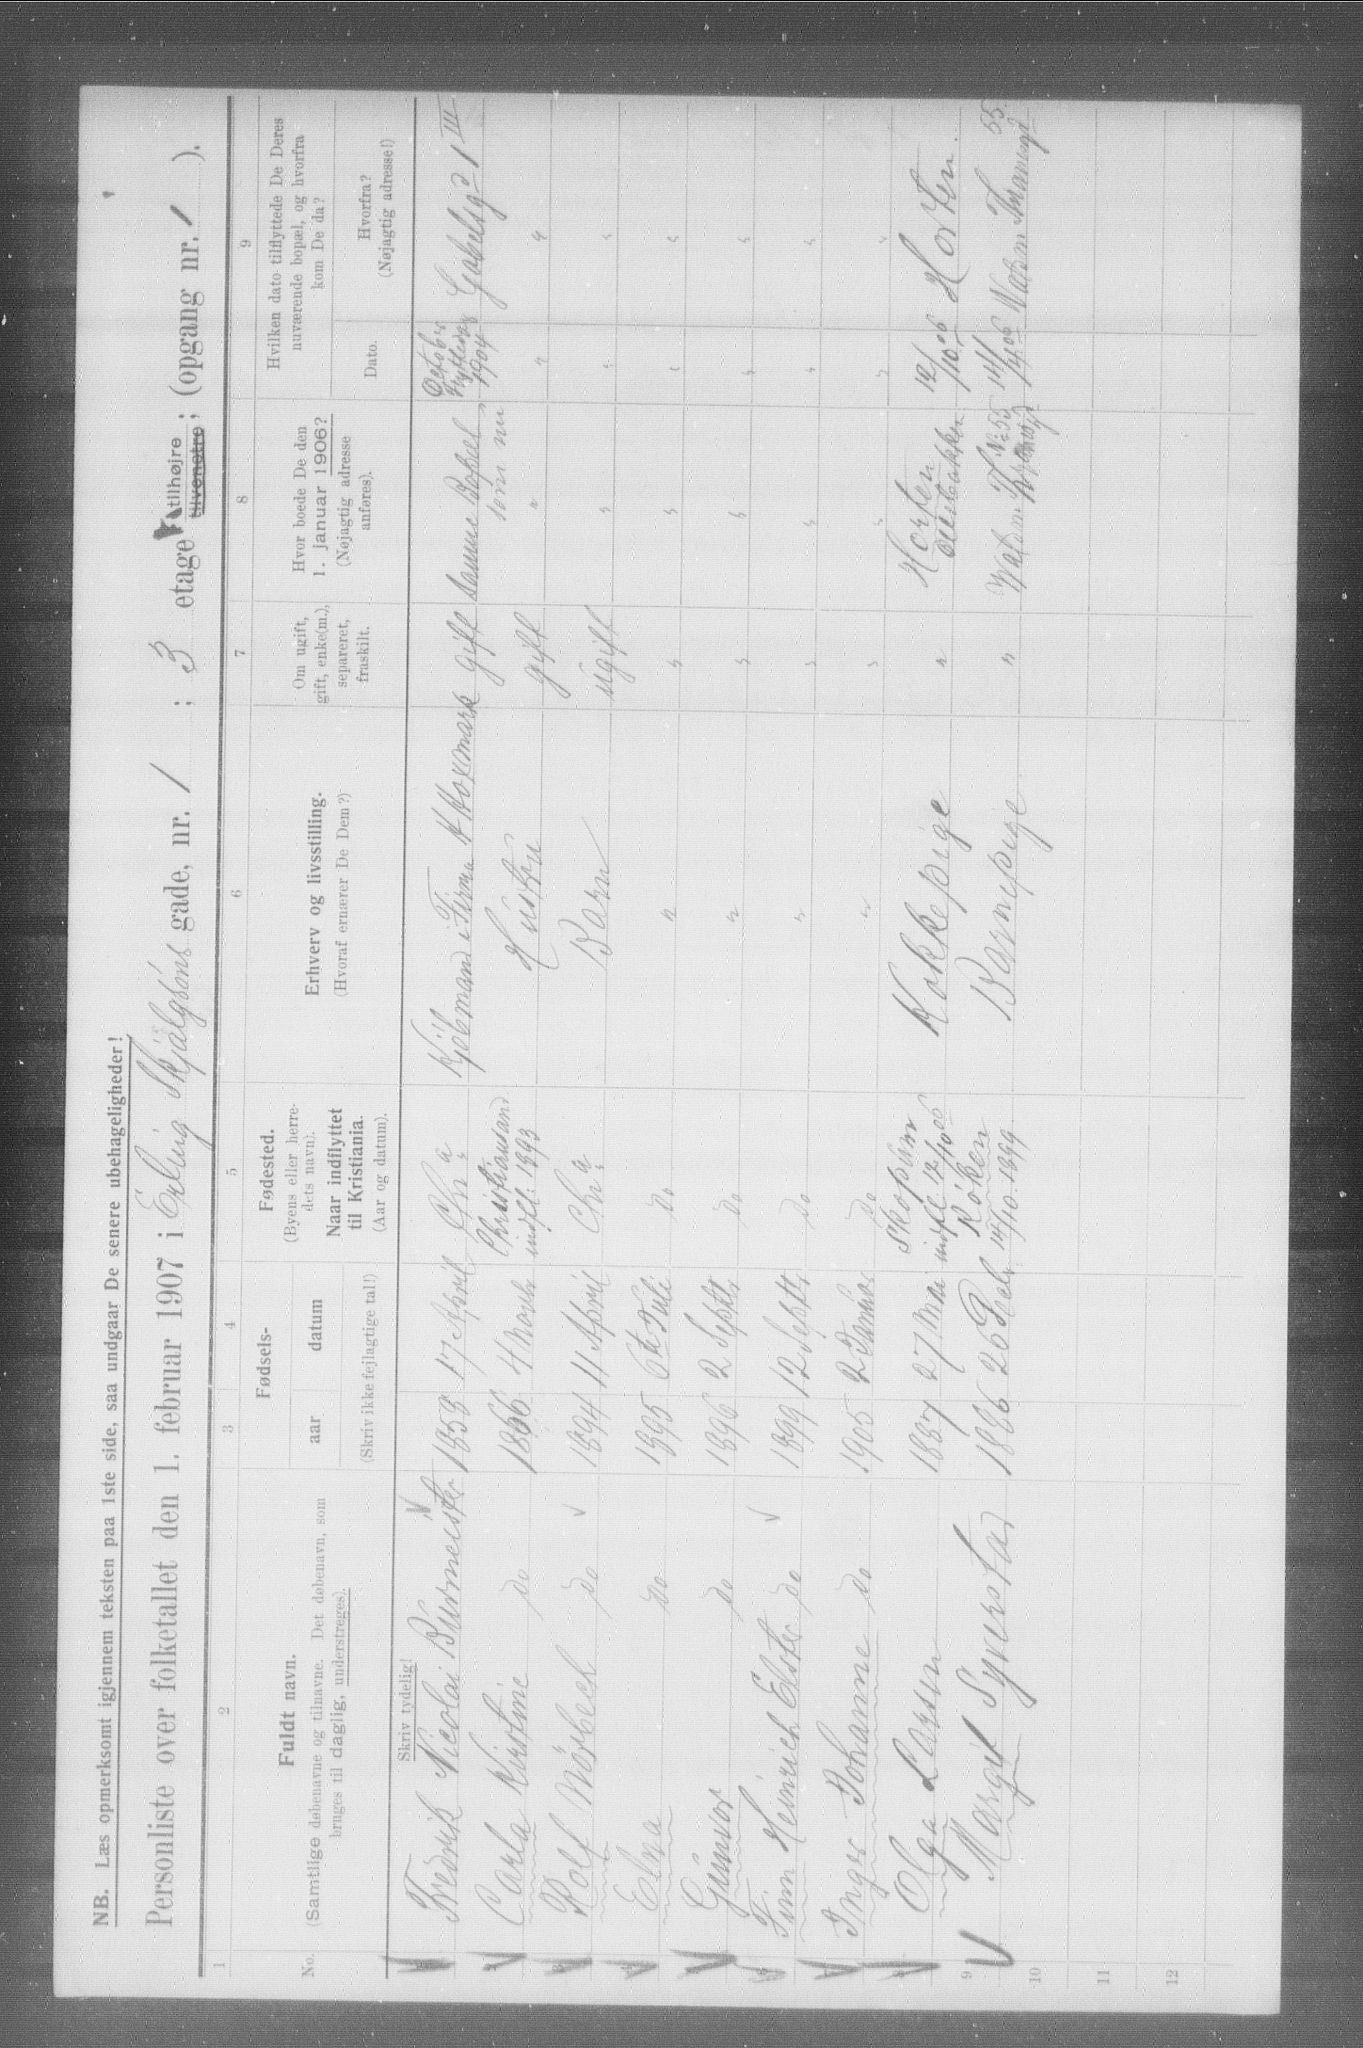 NB. Læs opmerksomt igjennem teksten paa 1ste side, saa undgaar De senere ubehageligheder!
Personliste over folketallet den 1. februar 1907 i Erling Skjalgsöns gade, nr. 1 ; 3 etage tilhøjre tilvenstre; (opgang nr. 1 ).
1 2 3 4 5 6 7 8 9
No.
Fuldt navn.
(Samtlige døbenavne og tilnavne. Det døbenavn, som
bruges til daglig, understreges).
Fødsels-
aar datum
(Skriv ikke fejlagtige tal!)
Fødested.
(Byens eller herre-
dets navn).
Naar indflyttet
til Kristiania.
(Aar og datum).
Erhverv og livsstilling.
(Hvoraf ernærer De Dem?)
Om ugift,
gift, enke(m.),
separeret,
fraskilt.
Hvor boede De den
1. januar 1906?
(Nøjagtig adresse
anføres).
Hvilken dato tilflyttede De Deres
nuværende bopæl, og hvorfra
kom De da?
Dato.
Hvorfra?
(Nøjagtig adresse!)
Skriv tydelig!
Fredrik Nicolai Burmeister 1853 17 April Chr a Kjøbmand i Firma gift samme Bopæl som nu October Flytning 1904 1 III
2 Carla Kirstine do 1866 4 Christiansand indfl. 1893 Hustru gift " " "
3 Rolf Mörbech do 1894 11 April Chr a Barn ugift " " "
4 Elna do 1895 6te Juli do " " " " "
5 Gunvor do 1896 2 Septbr do " " " " "
6 Finn Heinrich Elster do 1899 12 Septbr do " " " " "
7 Inger Johanne do 1905 2 Januar do " " " " "
8 Olga Larsen 1887 27 Mai Skopum indfl 12/10 06 Kokkepige " Horten 12/10 06 Horten.
9 Margit Syverstad 1886 26 Feb. Röken 14/10. 1899 Barnepige " No 55 14/4 06 55.
10
11
12